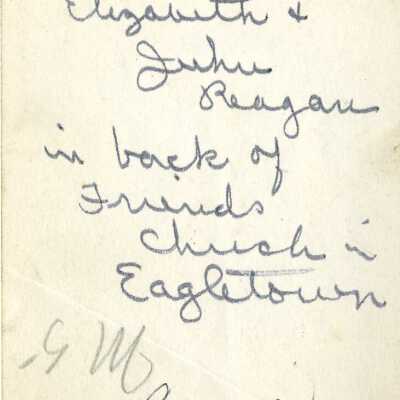 Elizabeth &
John
Reagan
in back of
Friends
Church in
Eagletown